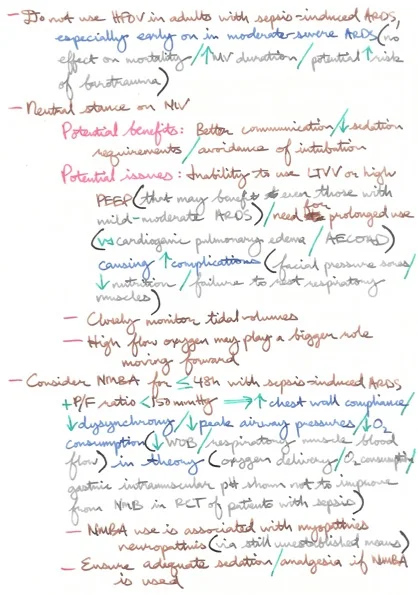 — Do not use HFOV in adults with sepsis-induced ARDS,
especially early on in moderate-severe ARDS (no
effect on mortality / ↑ MV duration / potential ↑ risk
of barotrauma)
— Neutral stance on NIV
Potential benefits: Better communication / ↓ sedation
requirements / avoidance of intubation
Potential issues: Inability to use LTVV or high
PEEP (that may benefit even those with
mild-moderate ARDS) / need for prolonged use
(vs cardiogenic pulmonary edema / AECOPD)
causing ↑ complications (facial pressure sores /
↓ nutrition / failure to rest respiratory
muscles)
— Closely monitor tidal volumes
— High flow oxygen may play a bigger role
moving forward
— Consider NMBA for ≤ 48h with sepsis-induced ARDS
+ P/F ratio < 150 mmHg ⟹ ↑ chest wall compliance /
↓ dysynchrony / ↓ peak airway pressures / ↓ O₂
consumption (↓ WOB / respiratory muscle blood
flow) in theory (oxygen delivery / O₂ consumption /
gastric intramuscular pH shown not to improve
from NMB in RCT of patients with sepsis)
— NMBA use is associated with myopathies
neuropathies (via still unestablished means)
— Ensure adequate sedation / analgesia if NMBA
is used